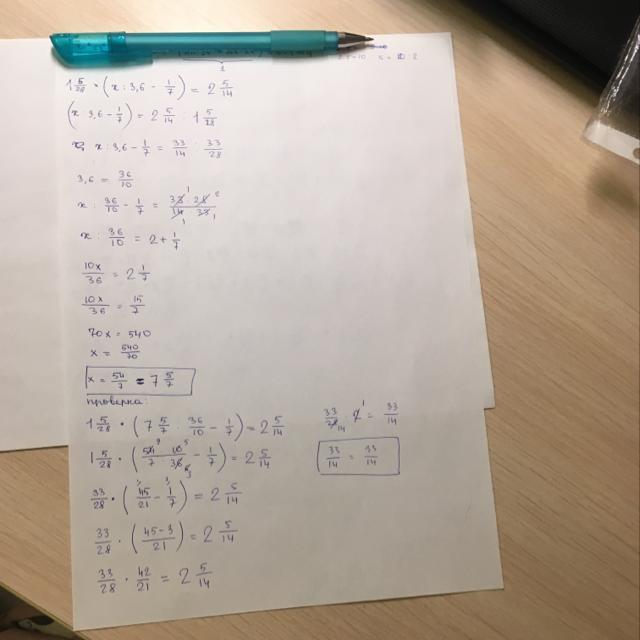 1 5/28 · (x : 3,6 - 1/7) = 2 5/14
(x : 3,6 - 1/7) = 2 5/14 : 1 5/28
x : 3,6 - 1/7 = 33/14 : 33/28
3,6 = 36/10
x : 36/10 - 1/7 = 33 · 28 / 14 · 33
x : 36/10 = 2 + 1/7
10x/36 = 2 1/7
10x/36 = 15/7
70x = 540
x = 540/70
x = 54/7 = 7 5/7
проверка:
1 5/28 · (7 5/7 : 36/10 - 1/7) = 2 5/14
1 5/28 · (54 · 10 / 7 · 36 - 1/7) = 2 5/14
33/28 · (45/21 - 1/7) = 2 5/14
33/28 · (45-3/21) = 2 5/14
33/28 · 42/21 = 2 5/14
33/28 · 2 = 33/14
33/14 = 33/14